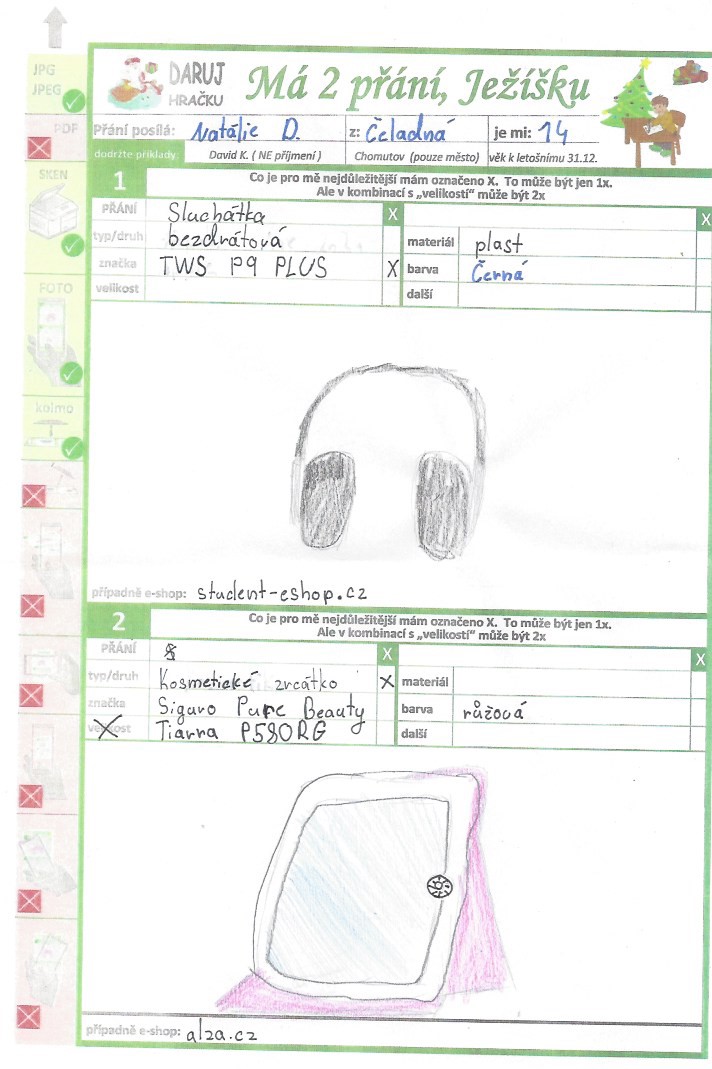 JPG
JPEG
PDF
SKEN
FOTO
kolmo
DARUJ
HRAČKU
Má 2 přání, Ježíšku
Přání posílá: Natálie D. z: Čeladná je mi: 14
dodržte příklady: David K. ( NE příjmení ) Chomutov (pouze město) věk k letošnímu 31.12.
1 Co je pro mě nejdůležitější mám označeno X. To může být jen 1x.
Ale v kombinací s „velikostí“ může být 2x
PŘÁNÍ Sluchátka X X
typ/druh bezdrátová materiál plast
značka TWS P9 PLUS X barva Černá
velikost další
případně e-shop: student-eshop.cz
2 Co je pro mě nejdůležitější mám označeno X. To může být jen 1x.
Ale v kombinací s „velikostí“ může být 2x
PŘÁNÍ X X
typ/druh Kosmetické zrcátko X materiál
značka Siguro Pure Beauty barva růžová
velikost Tiarra P580RG další
případně e-shop: alza.cz